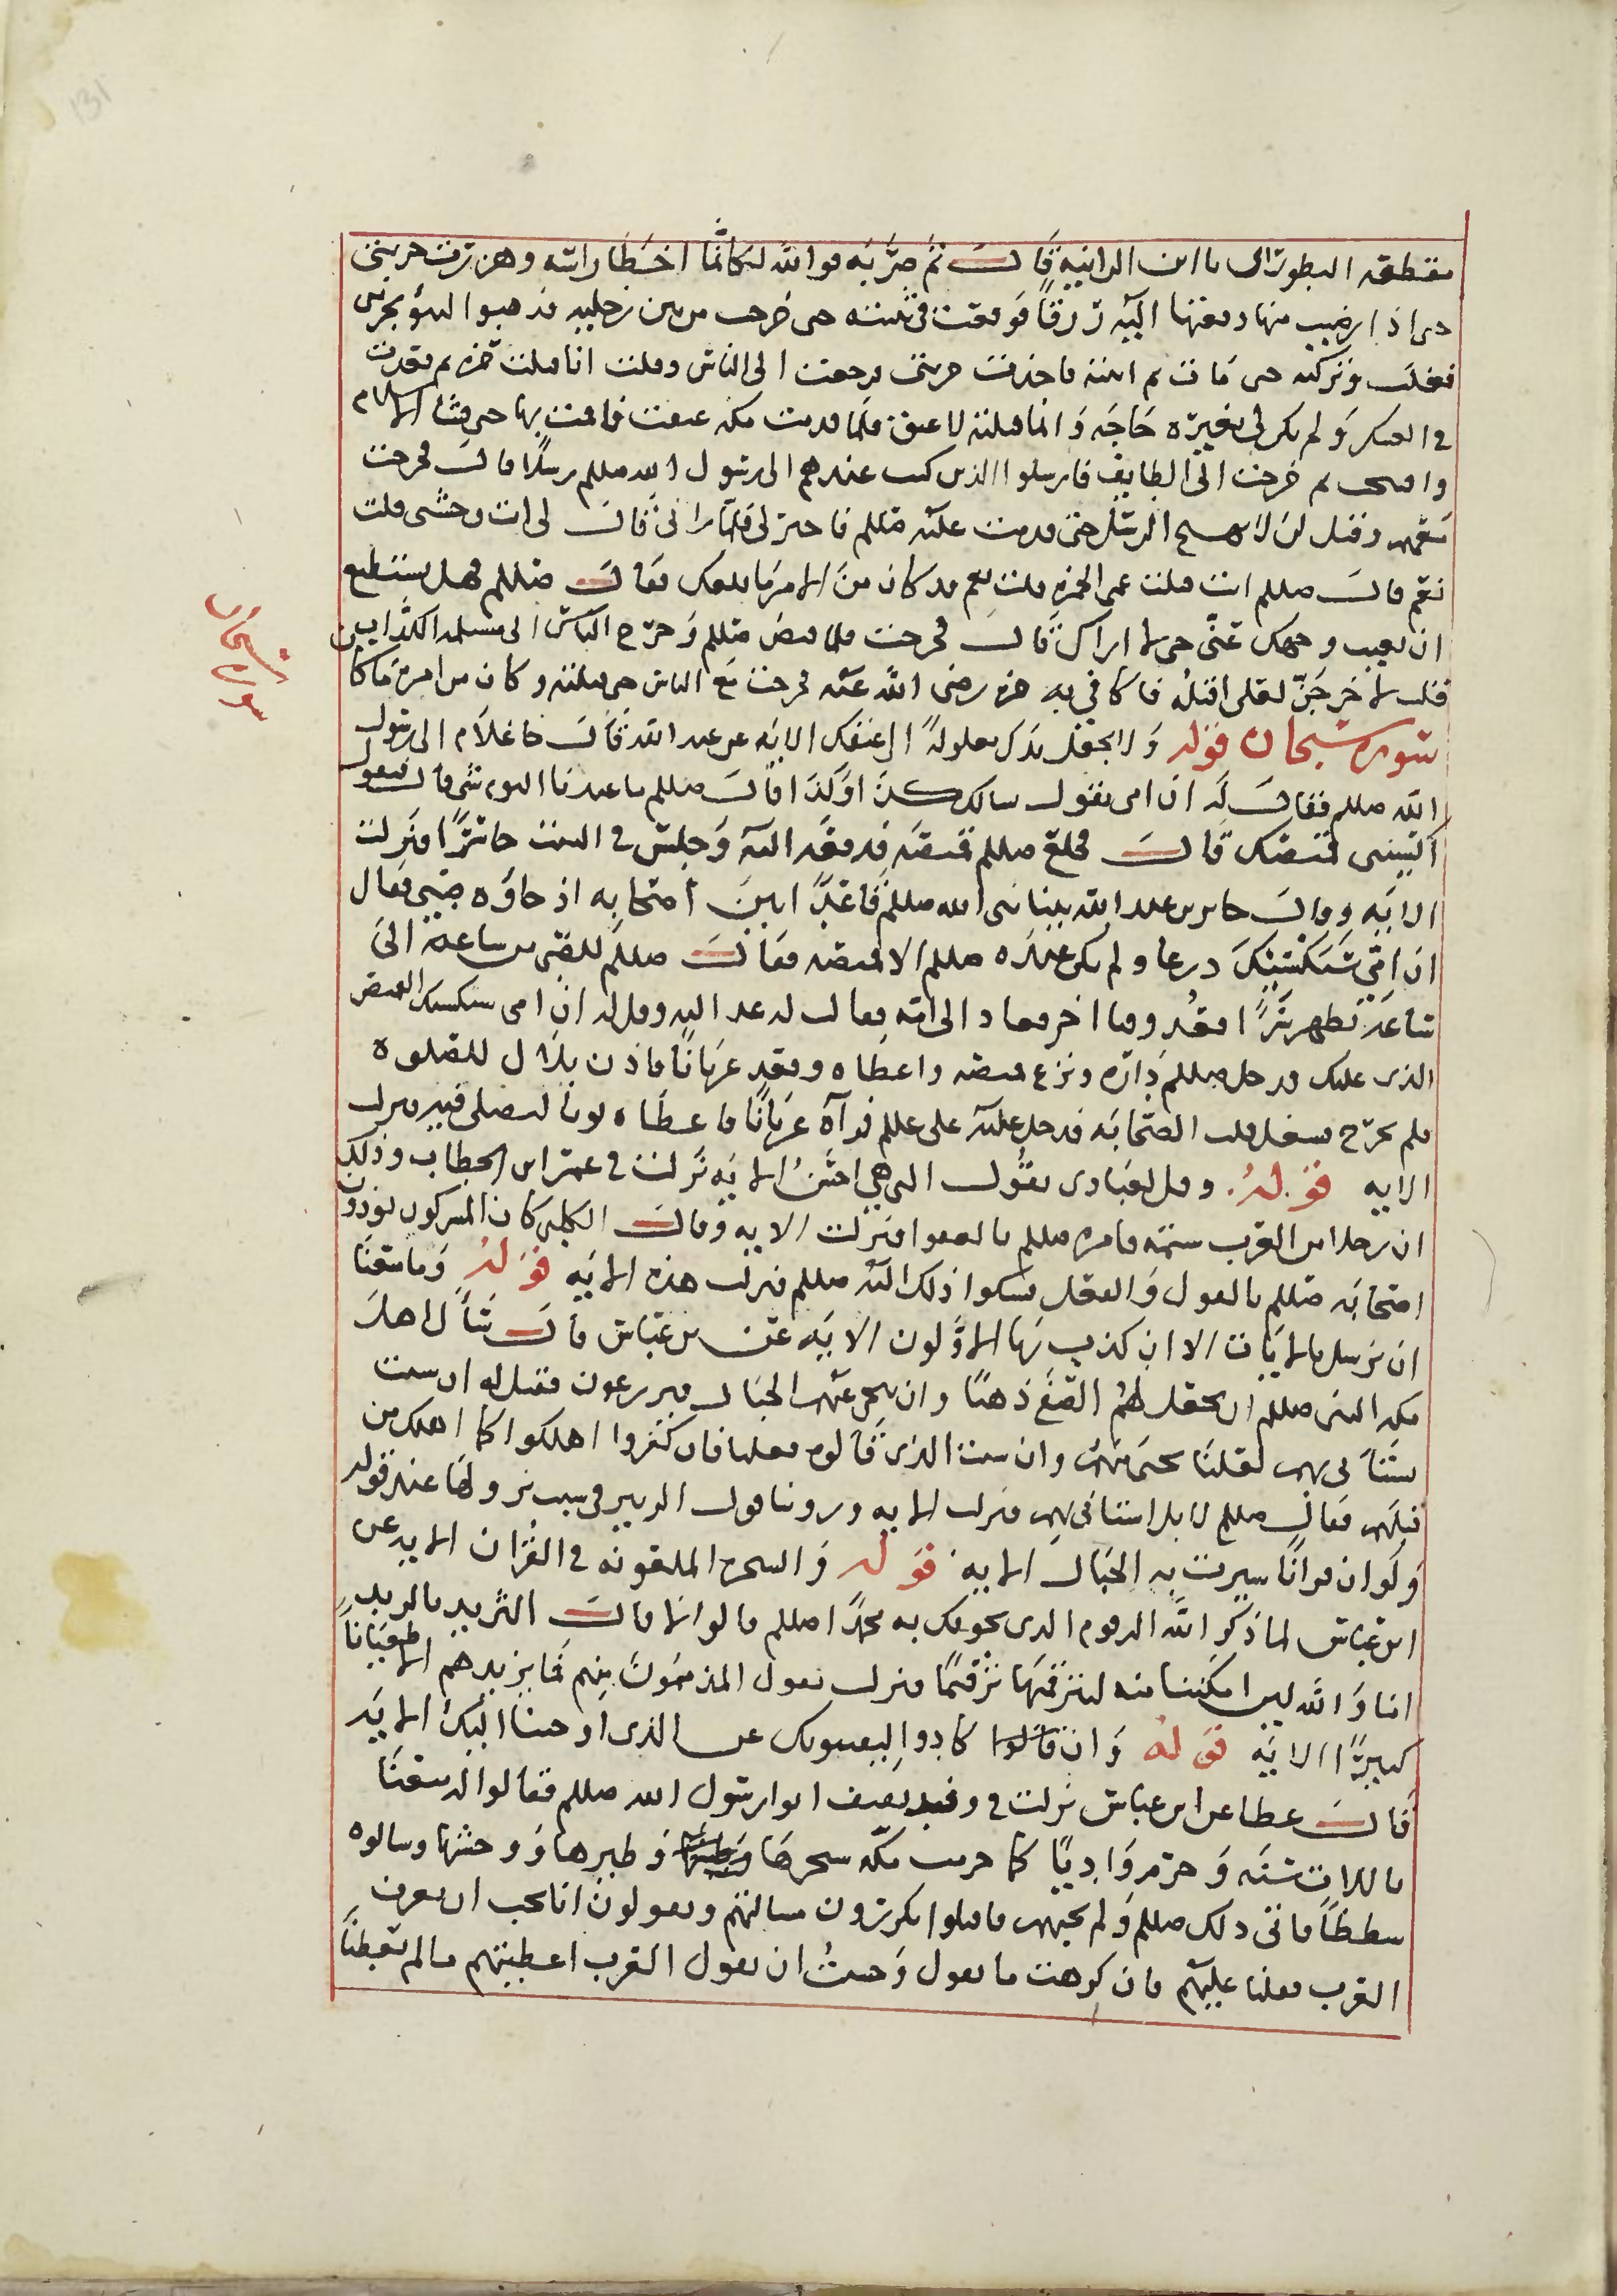 131
مقطعه البطورالى يا ابن الزانيه قال ثم ضربه فوالله لكانما اخطا راسه وهززت حربتى
حتى اذا رضيت منها دفعتها اليه زرقا فوقعت فى ثنته حتى خرجت من بين رجليه فذهبوا
فعلت وتركته حتى مات ثم اتيته فاخذت حربتى ورجعت الى الناس وقلت انا قتلت حمزه ثم قعدت
فى العسكر ولم يكن لى بغيره حاجه وانما قتلته لاعتق فلما قدمت مكه عتقت فاقمت بها حتى فشا الاسلام
ثم خرجت الى الطايف فارسلوا الذين كنت عندهم الى رسول الله صللم رسلا قال فخرجت
معهم وقيل لى لا يهيج الرسل حتى قدمت عليه صللم فلما رانى قال لى انت وحشى قلت
نعم قال صللم انت قتلت عمى الحمزه قلت نعم قد كان من الامر ما بلغك فقال صللم فهل تستطيع
ان تغيب وجهك عنى حتى لا اراك قال فخرجت فلما قبض صللم وخرج الناس الى مسيلمه الكذاب
قلت لاخرجن لعلى اقتله فاكافى به حمزه رضى الله عنه فخرجت مع الناس حتى قتلته وكان من امره ما كان
سورة سبحان قوله ولا تجعل يدك مغلولة الى عنقك الايه عن عبد الله قال جا غلام الى رسول
الله صللم فقال له ان امى تقول سالك كذا وكذا قال صللم ما عندنا اليوم شى قال فتقول
اكسنى قميصك قال فخلع صللم قميصه فدفعه اليه وجلس فى البيت حاسرا فنزلت
الايه وقال جابر بن عبد الله بينا نبى الله صللم قاعدا بين اصحابه اذ جاوه صبى فقال
ان امى تستكسيك درعا ولم يكن عنده صللم الا قميصه فقال صللم للصبى من ساعه الى
ساعه تظهر فعد وقتا اخر فعاد الى امه فقالت له عد اليه وقل له ان امى تستكسيك القميص
الذى عليك فدخل صللم داره ونزع قميصه واعطاه وقعد عريانا فاذن بلال للصلوه
فلم يخرج فشغل قلب الصحابه فدخل عليه على عللم فرآه عريانا فاعطاه ثوبا ليصلى فيه فنزلت
الايه قوله وقل لعبادى يقول التى هى احسن الايه نزلت فى عمر ابن الخطاب وذلك
ان رجلا من العرب شتمه فامره صللم بالعفو فنزلت الايه وقال الكلبى كان المشركون يوذون
اصحابه صللم بالقول والفعل فشكوا ذلك اليه صللم فنزلت هذه الايه قوله وما منعنا
ان نرسل بالايات الا ان كذب بها الاولون الايه عن بن عباس قال سال اهل
مكه النبى صللم ان يجعل لهم الصفا ذهبا وان ينحى عنهم الجبال فيزرعون فقيل له ان شئت
نستانى بهم لعلنا نجتبى منهم وان شئت الذى سالوه فعلنا فان كفروا اهلكوا كما اهلك من
قبلهم فقال صللم لا بل استانى بهم فنزلت الايه وروينا قول الزبير فى سبب نزولها عند قوله
ولو ان قرانا سيرت به الجبال الايه قوله والشجره الملعونه فى القران الايه عن
ابن عباس لما ذكر الله الزقوم الذى يخوفكم به محمد صللم قالوا لا قال الثريد بالزبد
اما والله ليس امكننا منه لنتزقمنها تزقما فنزلت فما يزيدهم الا طغيانا
كبيرا الايه قوله وان كادوا ليفتنونك عن الذى اوحينا اليك الايه
قال عطا عن ابن عباس نزلت فى وفد ثقيف اتوا رسول الله صللم فقالوا له متعنا
باللات سنه وحرم وادينا كما حرمت مكه شجرها وطيرها ووحشها وسالوه
شططا فابى ذلك صللم ولم يجبهم فاقبلوا يكررون مسالتهم ويقولون انا نحب ان تعرف
العرب فضلنا عليهم فان كرهت ما نقول وخشيت ان تقول العرب اعطيتهم ما لم تعطنا
سورة سبحان